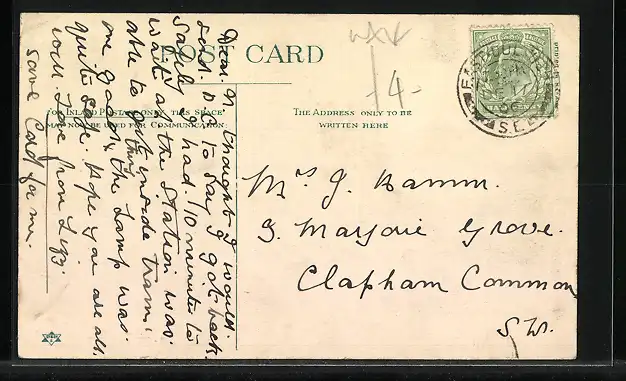 POST CARD
FOR INLAND POSTAGE ONLY, THIS SPACE
MAY NOW BE USED FOR COMMUNICATION.
THE ADDRESS ONLY TO BE
WRITTEN HERE
4
S.E.
Dear. N thought I would.
to say I got back.
safely had. 10 minutes to
wait at the Station was
able to get inside tram.
one good & the Lamp was.
quite safe. Hope you are all.
well Love from
save Card for me.
Mrs J. Hamm.
3. Marjorie Grove.
Clapham Common
S W.